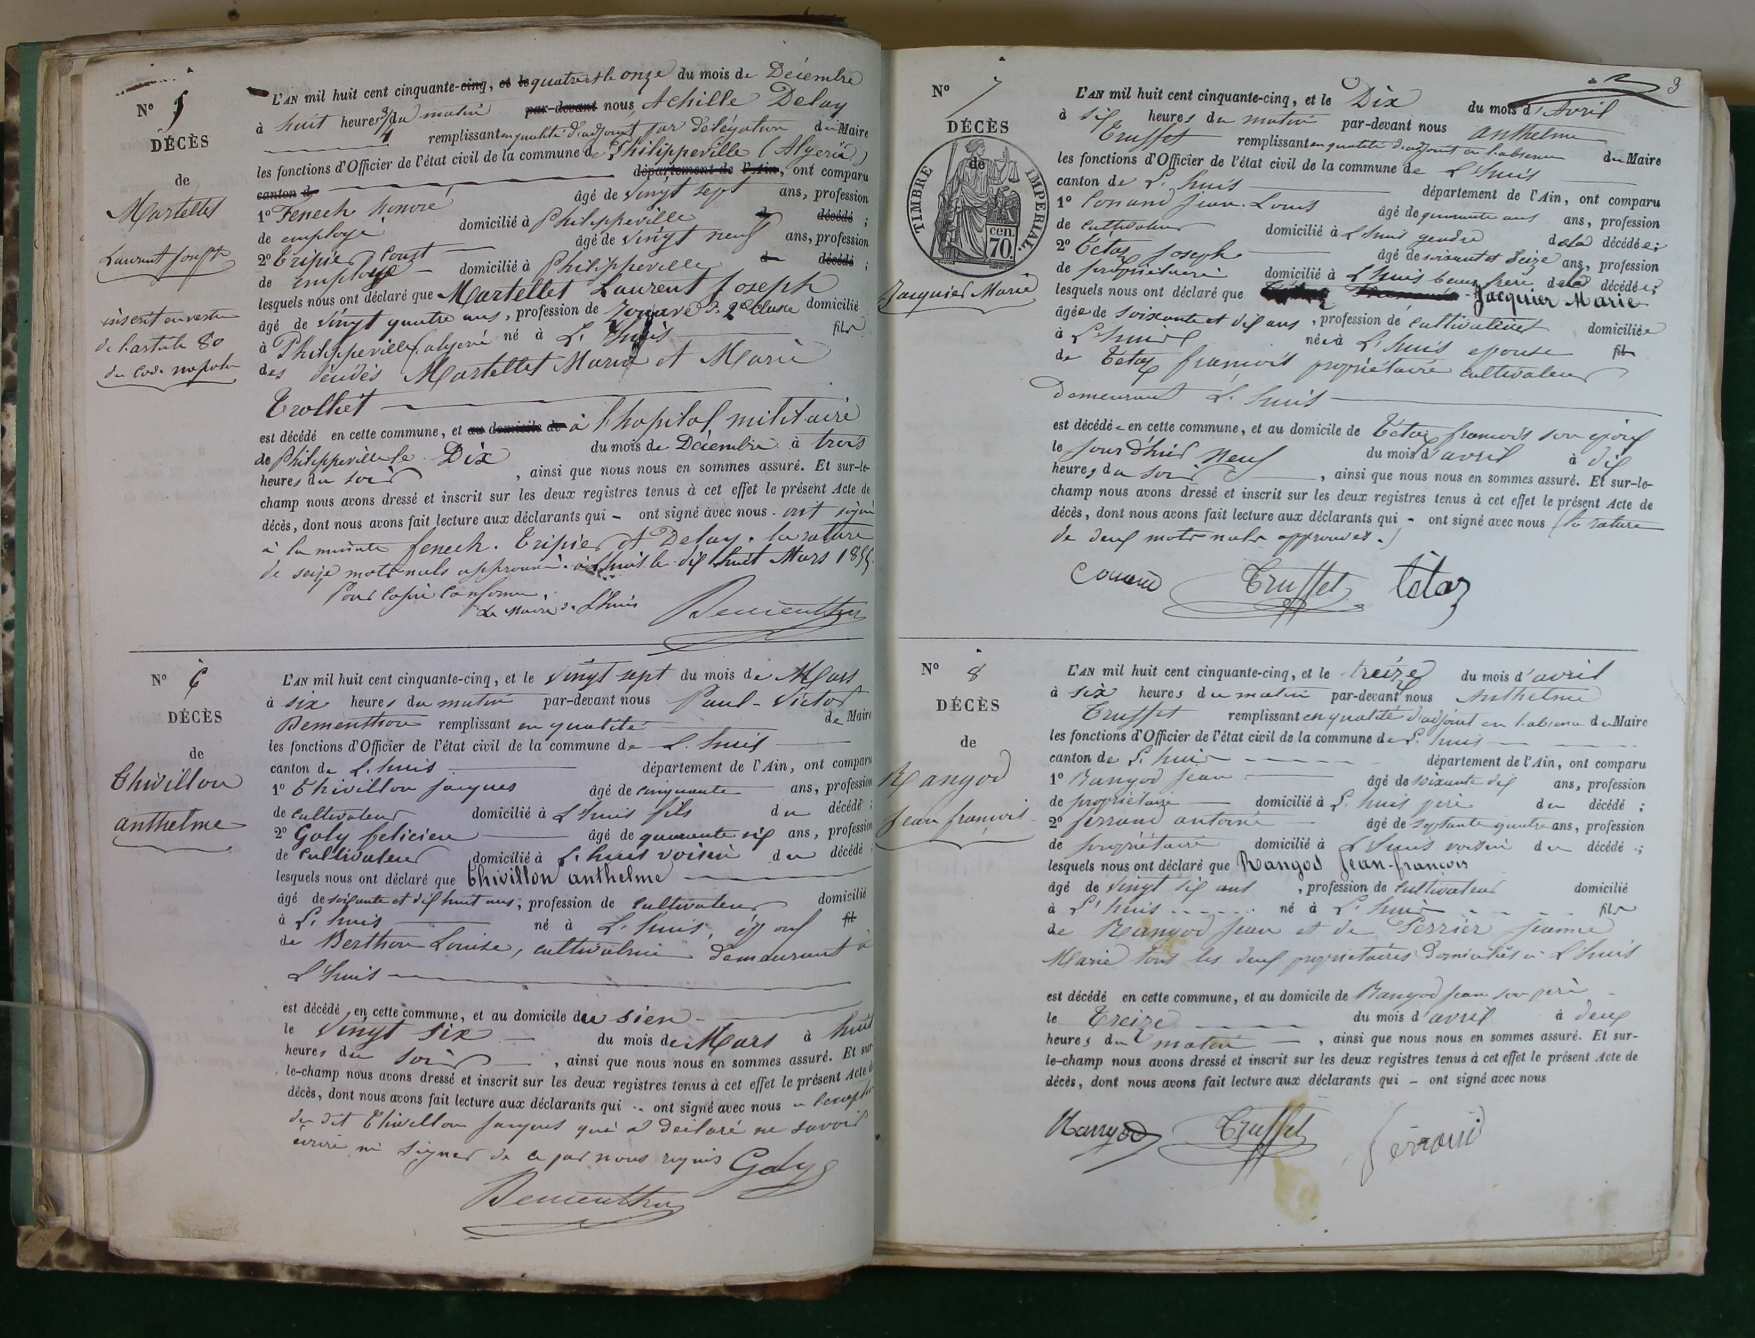 N° 5
DÉCÈS
de
Martellet
Laurent Joseph
inscrit en vertu
de l'article 80
du Code napoléon
L'AN mil huit cent cinquante-cinq, et le quatre et le onze du mois de Décembre
à huit heures du matin par-devant nous Achille Delay
remplissant en qualité d'adjoint par délégation du Maire
les fonctions d'Officier de l'état civil de la commune de Philippeville (Algérie)
canton de département de l'Ain, ont comparu
1° Fenech honoré âgé de vingt sept ans, profession
de employé domicilié à Philippeville d décédé ;
2° Tripier Court âgé de vingt neuf ans, profession
de employé domicilié à Philippeville d décédé ;
lesquels nous ont déclaré que Martellet Laurent Joseph
âgé de vingt quatre ans, profession de Zouave de 2e classe domicilié
à Philippeville algérie né à L'huis fils
des décédés Martellet Marie et Marie
Trolliet
est décédé en cette commune, et au domicile de à l'hopital militaire
de Philippeville le Dix du mois de Décembre à trois
heures du soir, ainsi que nous nous en sommes assuré. Et sur-le-
champ nous avons dressé et inscrit sur les deux registres tenus à cet effet le présent Acte de
décès, dont nous avons fait lecture aux déclarants qui – ont signé avec nous. ont signé
à la minute fenech. Tripier et Delay. la rature
de seize mots nuls approuvé. à L'huis le dix huit Mars 1855.
Pour copie conforme.
Le Maire de L'huis
Dementhon
N° 6
DÉCÈS
de
Chivillon
anthelme
L'AN mil huit cent cinquante-cinq, et le vingt sept du mois de Mars
à six heures du matin par-devant nous Paul-Victor
Dementhon remplissant en qualité de Maire
les fonctions d'Officier de l'état civil de la commune de L'huis
canton de L'huis département de l'Ain, ont comparu
1° Chivillon jacques âgé de cinquante ans, profession
de cultivateur domicilié à L'huis fils du décédé ;
2° Goly felicien âgé de quarante six ans, profession
de cultivateur domicilié à L'huis voisin du décédé
lesquels nous ont déclaré que Chivillon anthelme
âgé de soixante et dix huit ans, profession de cultivateur domicilié
à L'huis né à L'huis, époux fil
de Berthon Louise, cultivatrice demeurant à
L'huis
est décédé en cette commune, et au domicile du sien
le vingt six du mois de Mars à huit
heures du soir, ainsi que nous nous en sommes assuré. Et sur
le-champ nous avons dressé et inscrit sur les deux registres tenus à cet effet le présent Acte de
décès, dont nous avons fait lecture aux déclarants qui – ont signé avec nous à l'exception
du dit Chivillon jacques qui a déclaré ne savoir
écrire ni signer de ce par nous requis Goly
Dementhon
3
N° 7
DÉCÈS
de
TIMBRE IMPERIAL.
cen. 70.
Jacquier Marie
L'AN mil huit cent cinquante-cinq, et le Dix du mois d'Avril
à six heures du matin par-devant nous anthelme
Truffet remplissant en qualité d'adjoint en l'absence du Maire
les fonctions d'Officier de l'état civil de la commune de L'huis
canton de L'huis département de l'Ain, ont comparu
1° Conand Jean-Louis âgé de quarante ans ans, profession
de cultivateur domicilié à L'huis gendre de la décédée ;
2° Tetaz Joseph âgé de soixante et seize ans, profession
de propriétaire domicilié à L'huis beau frère de la décédée ;
lesquels nous ont déclaré que Jacquier Marie
âgée de soixante et dix ans, profession de cultivatrice domiciliée
à L'huis née à L'huis epouse fil
de Tetaz françois propriétaire cultivateur
Demeurant L'huis
est décédée en cette commune, et au domicile de Tetaz françois son époux
le jour d'hier neuf du mois d'avril à dix
heures du soir, ainsi que nous nous en sommes assuré. Et sur-le-
champ nous avons dressé et inscrit sur les deux registres tenus à cet effet le présent Acte de
décès, dont nous avons fait lecture aux déclarants qui – ont signé avec nous (la rature
de deux mots nuls approuvée.)
Conand Truffet tétaz
N° 8
DÉCÈS
de
Rangod
Jean françois
L'AN mil huit cent cinquante-cinq, et le treize du mois d'avril
à six heures du matin par-devant nous Anthelme
Truffet remplissant en qualité d'adjoint en l'absence du Maire
les fonctions d'Officier de l'état civil de la commune de L'huis
canton de L'huis département de l'Ain, ont comparu
1° Rangod Jean âgé de soixante dix ans, profession
de propriétaire domicilié à L'huis père du décédé ;
2° ferrand antoine âgé de septante quatre ans, profession
de propriétaire domicilié à L'huis voisin du décédé ;
lesquels nous ont déclaré que Rangod Jean-françois
âgé de vingt six ans, profession de cultivateur domicilié
à L'huis né à L'huis fils
de Rangod Jean et de Perrier Jeanne
Marie tous les deux propriétaires domiciliés à L'huis
est décédé en cette commune, et au domicile de Rangod Jean son père
le Treize du mois d'avril à deux
heures du matin, ainsi que nous nous en sommes assuré. Et sur-
le-champ nous avons dressé et inscrit sur les deux registres tenus à cet effet le présent Acte de
décès, dont nous avons fait lecture aux déclarants qui – ont signé avec nous
Rangod Truffet ferrand